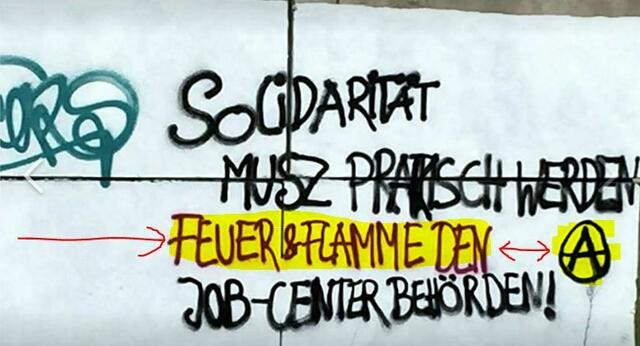 SOLIDARITÄT
MUSZ PRAKTISCH WERDEN
FEUER & FLAMME DEN
JOB-CENTER BEHÖRDEN!